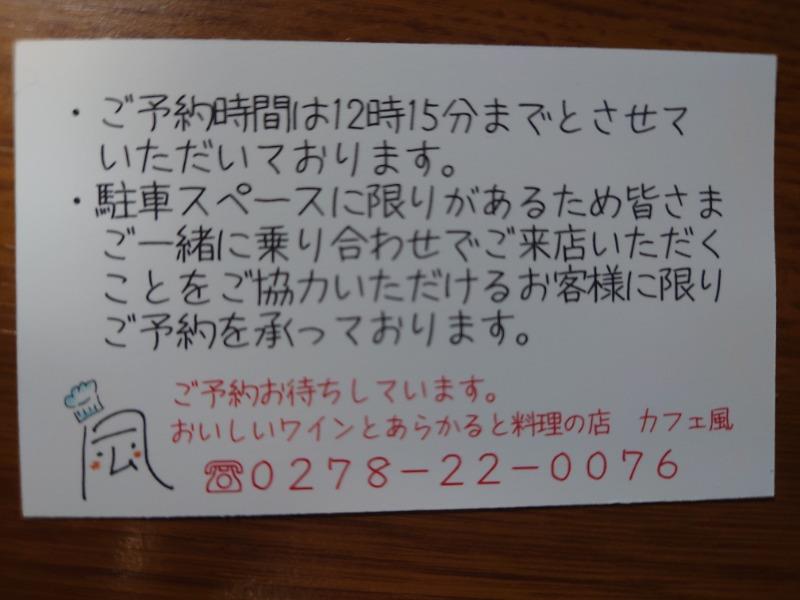 ・ご予約時間は12時15分までとさせて
いただいております。
・駐車スペースに限りがあるため皆さま
ご一緒に乗り合わせでご来店いただく
ことをご協力いただけるお客様に限り
ご予約を承っております。
ご予約お待ちしています。
おいしいワインとあらかると料理の店　カフェ風
☎0278-22-0076
風